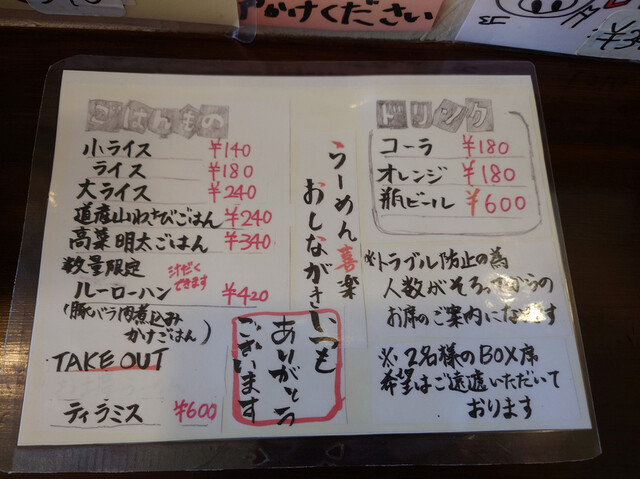 やかけください
ごはんもの
小ライス ¥140
ライス ¥180
大ライス ¥240
道産山わさびごはん ¥240
高菜明太ごはん ¥340
数量限定
汁だく
できます
ルーローハン ¥420
(豚バラ肉煮込み
かけごはん)
TAKE OUT
ティラミス ¥600
らーめん喜楽
おしながき
いつも
ありがとう
ございます
ドリンク
コーラ ¥180
オレンジ ¥180
瓶ビール ¥600
※トラブル防止の為
人数がそろってからの
お席のご案内になります
※2名様のBOX席
希望はご遠遠いただいて
おります